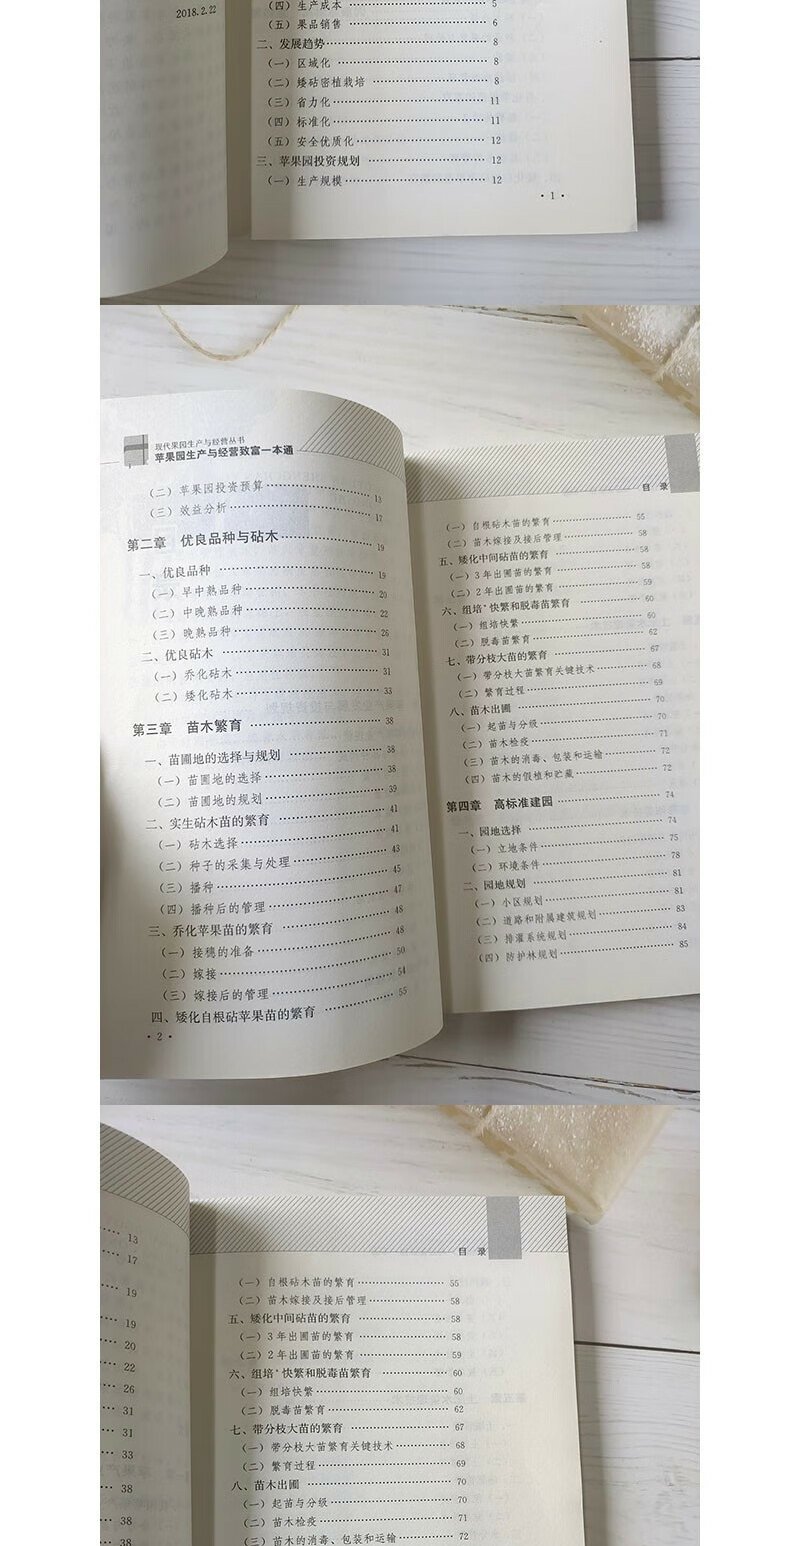 2018.2.22
（四）生产成本 …… 5
（五）果品销售 …… 6
二、发展趋势 …… 8
（一）区域化 …… 8
（二）矮砧密植栽培 …… 8
（三）省力化 …… 11
（四）标准化 …… 11
（五）安全优质化 …… 12
三、苹果园投资规划 …… 12
（一）生产规模 …… 12
· 1 ·
现代果园生产与经营丛书
苹果园生产与经营致富一本通
（二）苹果园投资预算 …… 13
（三）效益分析 …… 17
第二章 优良品种与砧木 …… 19
一、优良品种 …… 19
（一）早中熟品种 …… 20
（二）中晚熟品种 …… 22
（三）晚熟品种 …… 26
二、优良砧木 …… 31
（一）乔化砧木 …… 31
（二）矮化砧木 …… 33
第三章 苗木繁育 …… 38
一、苗圃地的选择与规划 …… 38
（一）苗圃地的选择 …… 38
（二）苗圃地的规划 …… 39
二、实生砧木苗的繁育 …… 41
（一）砧木选择 …… 41
（二）种子的采集与处理 …… 43
（三）播种 …… 45
（四）播种后的管理 …… 47
三、乔化苹果苗的繁育 …… 48
（一）接穗的准备 …… 48
（二）嫁接 …… 50
（三）嫁接后的管理 …… 54
四、矮化自根砧苹果苗的繁育 …… 55
· 2 ·
目 录
（一）自根砧木苗的繁育 …… 55
（二）苗木嫁接及接后管理 …… 58
五、矮化中间砧苗的繁育 …… 58
（一）3年出圃苗的繁育 …… 58
（二）2年出圃苗的繁育 …… 59
六、组培快繁和脱毒苗繁育 …… 60
（一）组培快繁 …… 60
（二）脱毒苗繁育 …… 62
七、带分枝大苗的繁育 …… 67
（一）带分枝大苗繁育关键技术 …… 68
（二）繁育过程 …… 69
八、苗木出圃 …… 70
（一）起苗与分级 …… 70
（二）苗木检疫 …… 71
（三）苗木的消毒、包装和运输 …… 72
（四）苗木的假植和贮藏 …… 72
第四章 高标准建园 …… 74
一、园地选择 …… 74
（一）立地条件 …… 75
（二）环境条件 …… 78
二、园地规划 …… 81
（一）小区规划 …… 81
（二）道路和附属建筑规划 …… 83
（三）排灌系统规划 …… 84
（四）防护林规划 …… 85
13
17
19
19
20
22
26
31
31
33
38
38
38
目 录
（一）自根砧木苗的繁育 …… 55
（二）苗木嫁接及接后管理 …… 58
五、矮化中间砧苗的繁育 …… 58
（一）3年出圃苗的繁育 …… 58
（二）2年出圃苗的繁育 …… 59
六、组培快繁和脱毒苗繁育 …… 60
（一）组培快繁 …… 60
（二）脱毒苗繁育 …… 62
七、带分枝大苗的繁育 …… 67
（一）带分枝大苗繁育关键技术 …… 68
（二）繁育过程 …… 69
八、苗木出圃 …… 70
（一）起苗与分级 …… 70
（二）苗木检疫 …… 71
（三）苗木的消毒、包装和运输 …… 72